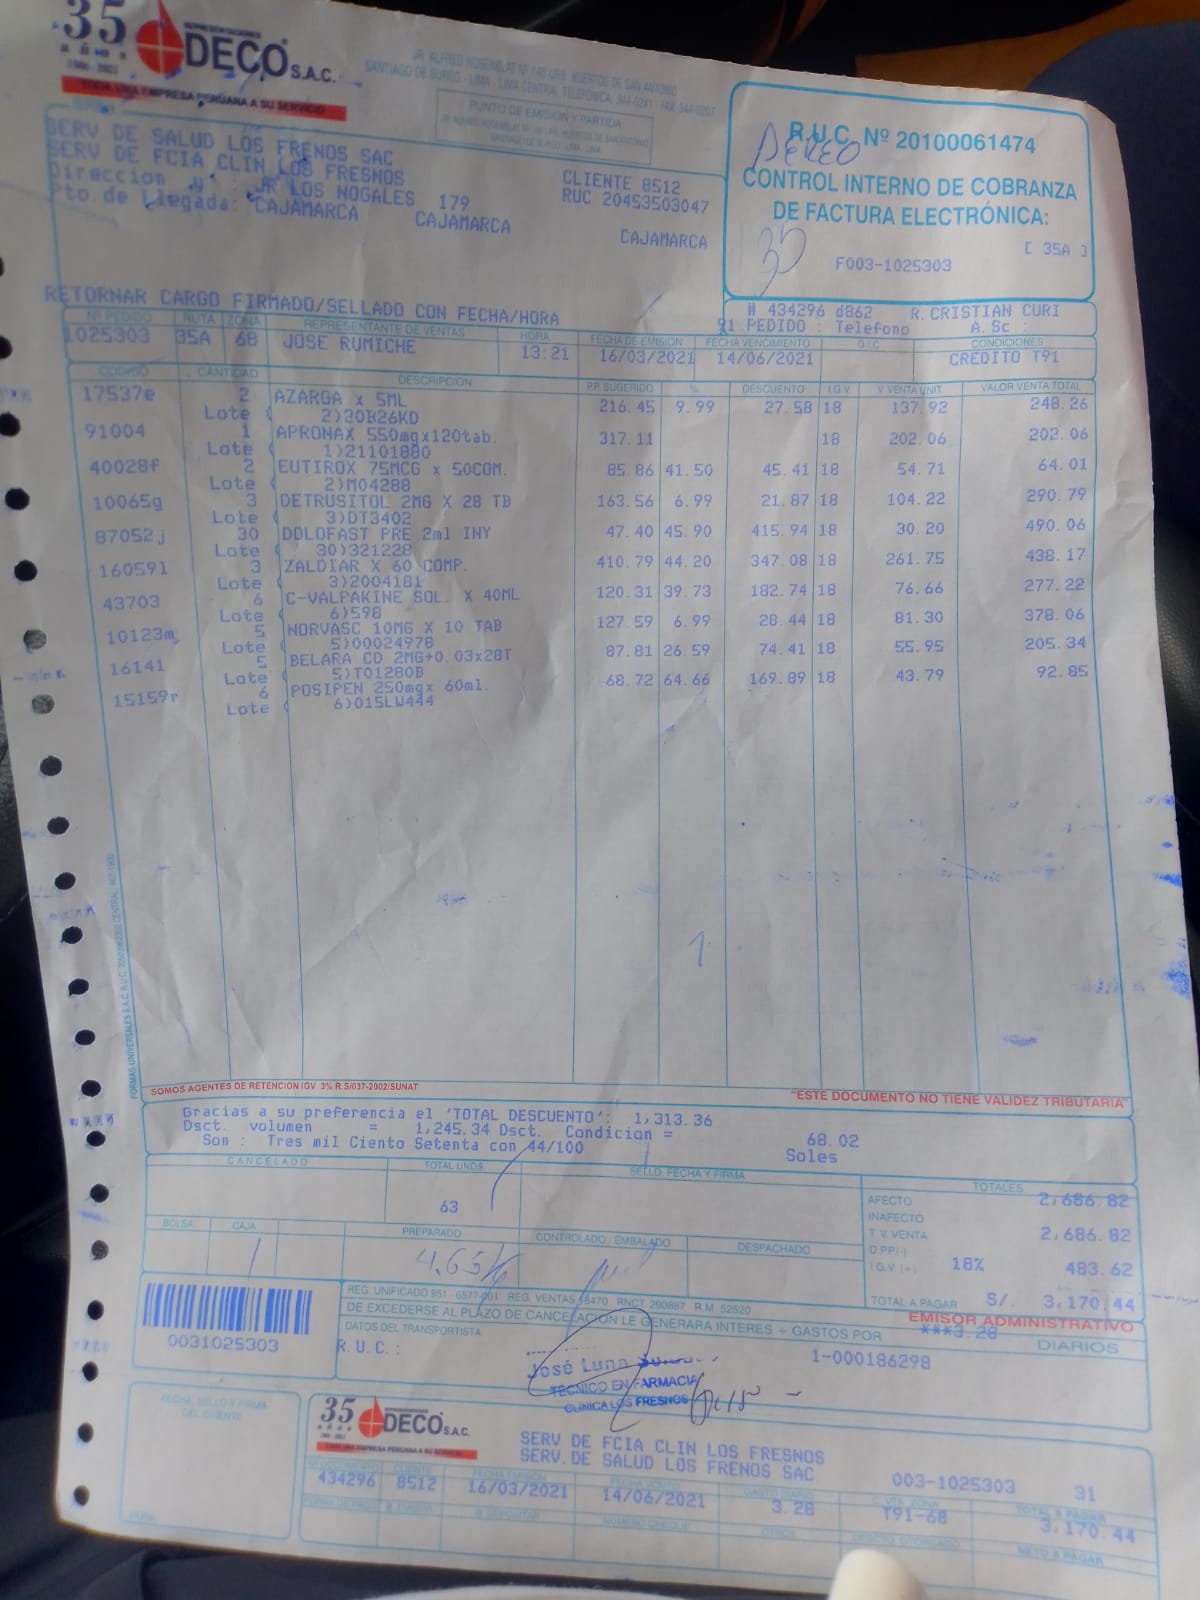 35
AÑOS
REPRESENTACIONES
DECO S.A.C.
TODA UNA EMPRESA PERUANA A SU SERVICIO
JR. ALFRED ROSEMBLAT Nº 145 URB. HUERTOS DE SAN ANTONIO
SANTIAGO DE SURCO - LIMA - LIMA CENTRAL TELEFÓNICA: 344-0241 - FAX: 344-0207
PUNTO DE EMISIÓN Y PARTIDA
SANTIAGO DE SURCO - LIMA - LIMA
R.U.C. Nº 20100061474
AEREO
CONTROL INTERNO DE COBRANZA
DE FACTURA ELECTRÓNICA:
[ 35A ]
F003-1025303
SERV.DE SALUD LOS FRENOS SAC
SERV DE FCIA CLIN LOS FRESNOS
Direccion y : JR LOS NOGALES 179
Pto.de Llegada: CAJAMARCA CAJAMARCA CAJAMARCA
CLIENTE 8512
RUC 20453503047
RETORNAR CARGO FIRMADO/SELLADO CON FECHA/HORA
# 434296 d862 R.CRISTIAN CURI
PEDIDO : Telefono A.Sc :
Nº PEDIDO RUTA ZONA REPRESENTANTE DE VENTAS HORA FECHA DE EMISION FECHA VENCIMIENTO O/C CONDICIONES
1025303 35A 68 JOSE RUMICHE 13:21 16/03/2021 14/06/2021 CREDITO T91
CODIGO CANTIDAD DESCRIPCION PP. SUGERIDO % DESCUENTO I.G.V V. VENTA UNIT. VALOR VENTA TOTAL
17537e 2 AZARGA x 5ML 216.45 9.99 27.58 18 137.92 248.26
Lote ( 2)20B26KD
91004 1 APRONAX 550mgx120tab. 317.11 18 202.06 202.06
Lote ( 1)21101880
40028f 2 EUTIROX 75MCG x 50COM. 85.86 41.50 45.41 18 54.71 64.01
Lote ( 2)M04288
10065g 3 DETRUSITOL 2MG X 28 TB 163.56 6.99 21.87 18 104.22 290.79
Lote ( 3)DT3402
87052j 30 DOLOFAST PRE 2ml INY 47.40 45.90 415.94 18 30.20 490.06
Lote ( 30)321228
160591 3 ZALDIAR X 60 COMP. 410.79 44.20 347.08 18 261.75 438.17
Lote ( 3)2004181
43703 6 C-VALPAKINE SOL. X 40ML 120.31 39.73 182.74 18 76.66 277.22
Lote ( 6)598
10123m 5 NORVASC 10MG X 10 TAB 127.59 6.99 28.44 18 81.30 378.06
Lote ( 5)00024978
16141 5 BELARA CD 2MG+0.03x28T 87.81 26.59 74.41 18 55.95 205.34
Lote ( 5)T01280B
15159r 6 POSIPEN 250mgx 60ml. 68.72 64.66 169.89 18 43.79 92.85
Lote ( 6)015LW444
SOMOS AGENTES DE RETENCION IGV 3% R.S/037-2002/SUNAT
"ESTE DOCUMENTO NO TIENE VALIDEZ TRIBUTARIA"
Gracias a su preferencia el 'TOTAL DESCUENTO': 1,313.36
Dsct. volumen = 1,245.34 Dsct. Condicion = 68.02
Son : Tres mil Ciento Setenta con 44/100 Soles
CANCELADO TOTAL UNDS. SELLO, FECHA Y FIRMA TOTALES
63
AFECTO 2,686.82
INAFECTO
T.V. VENTA 2,686.82
D.PP(-)
I.G.V (+) 18% 483.62
TOTAL A PAGAR S/. 3,170.44
BOLSA CAJA PREPARADO CONTROLADO / EMBALADO DESPACHADO
1
REG. UNIFICADO 951 - 6577-001 REG. VENTAS 18470 RNCT 290887 R.M. 52520
EMISOR ADMINISTRATIVO
DE EXCEDERSE AL PLAZO DE CANCELACIÓN LE GENERARA INTERES + GASTOS POR ***3.28 DIARIOS
DATOS DEL TRANSPORTISTA
R.U.C.: 1-000186298
0031025303
José Luna
TÉCNICO EN FARMACIA
CLÍNICA LOS FRESNOS
FECHA, SELLO Y FIRMA
DEL CLIENTE
35
AÑOS
REPRESENTACIONES
DECO S.A.C.
TODA UNA EMPRESA PERUANA A SU SERVICIO
SERV DE FCIA CLIN LOS FRESNOS
SERV.DE SALUD LOS FRENOS SAC
003-1025303 31
CLIENTE FECHA EMISION FECHA VENCTO GASTO DIARIO C. VTA. ZONA TOTAL A PAGAR
434296 8512 16/03/2021 14/06/2021 3.28 T91-68 3,170.44
NUMERO CHEQUE OTROS NETO A PAGAR